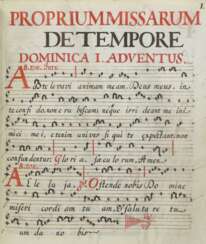 1
PROPRIUM MISSARUM
DE TEMPORE
DOMINICA I. ADVENTUS.
Ad te levavi animam meam: Deus meus, in
te confido, non erubescam: neque irrideant me ini-
mici mei, etenim universi qui te expectant, non
confundentur. Gloria. sæculorum, Amen.
Alleluja, Ostende nobis Domine
misericordiam tuam, et salutare tu-
um da nobis.